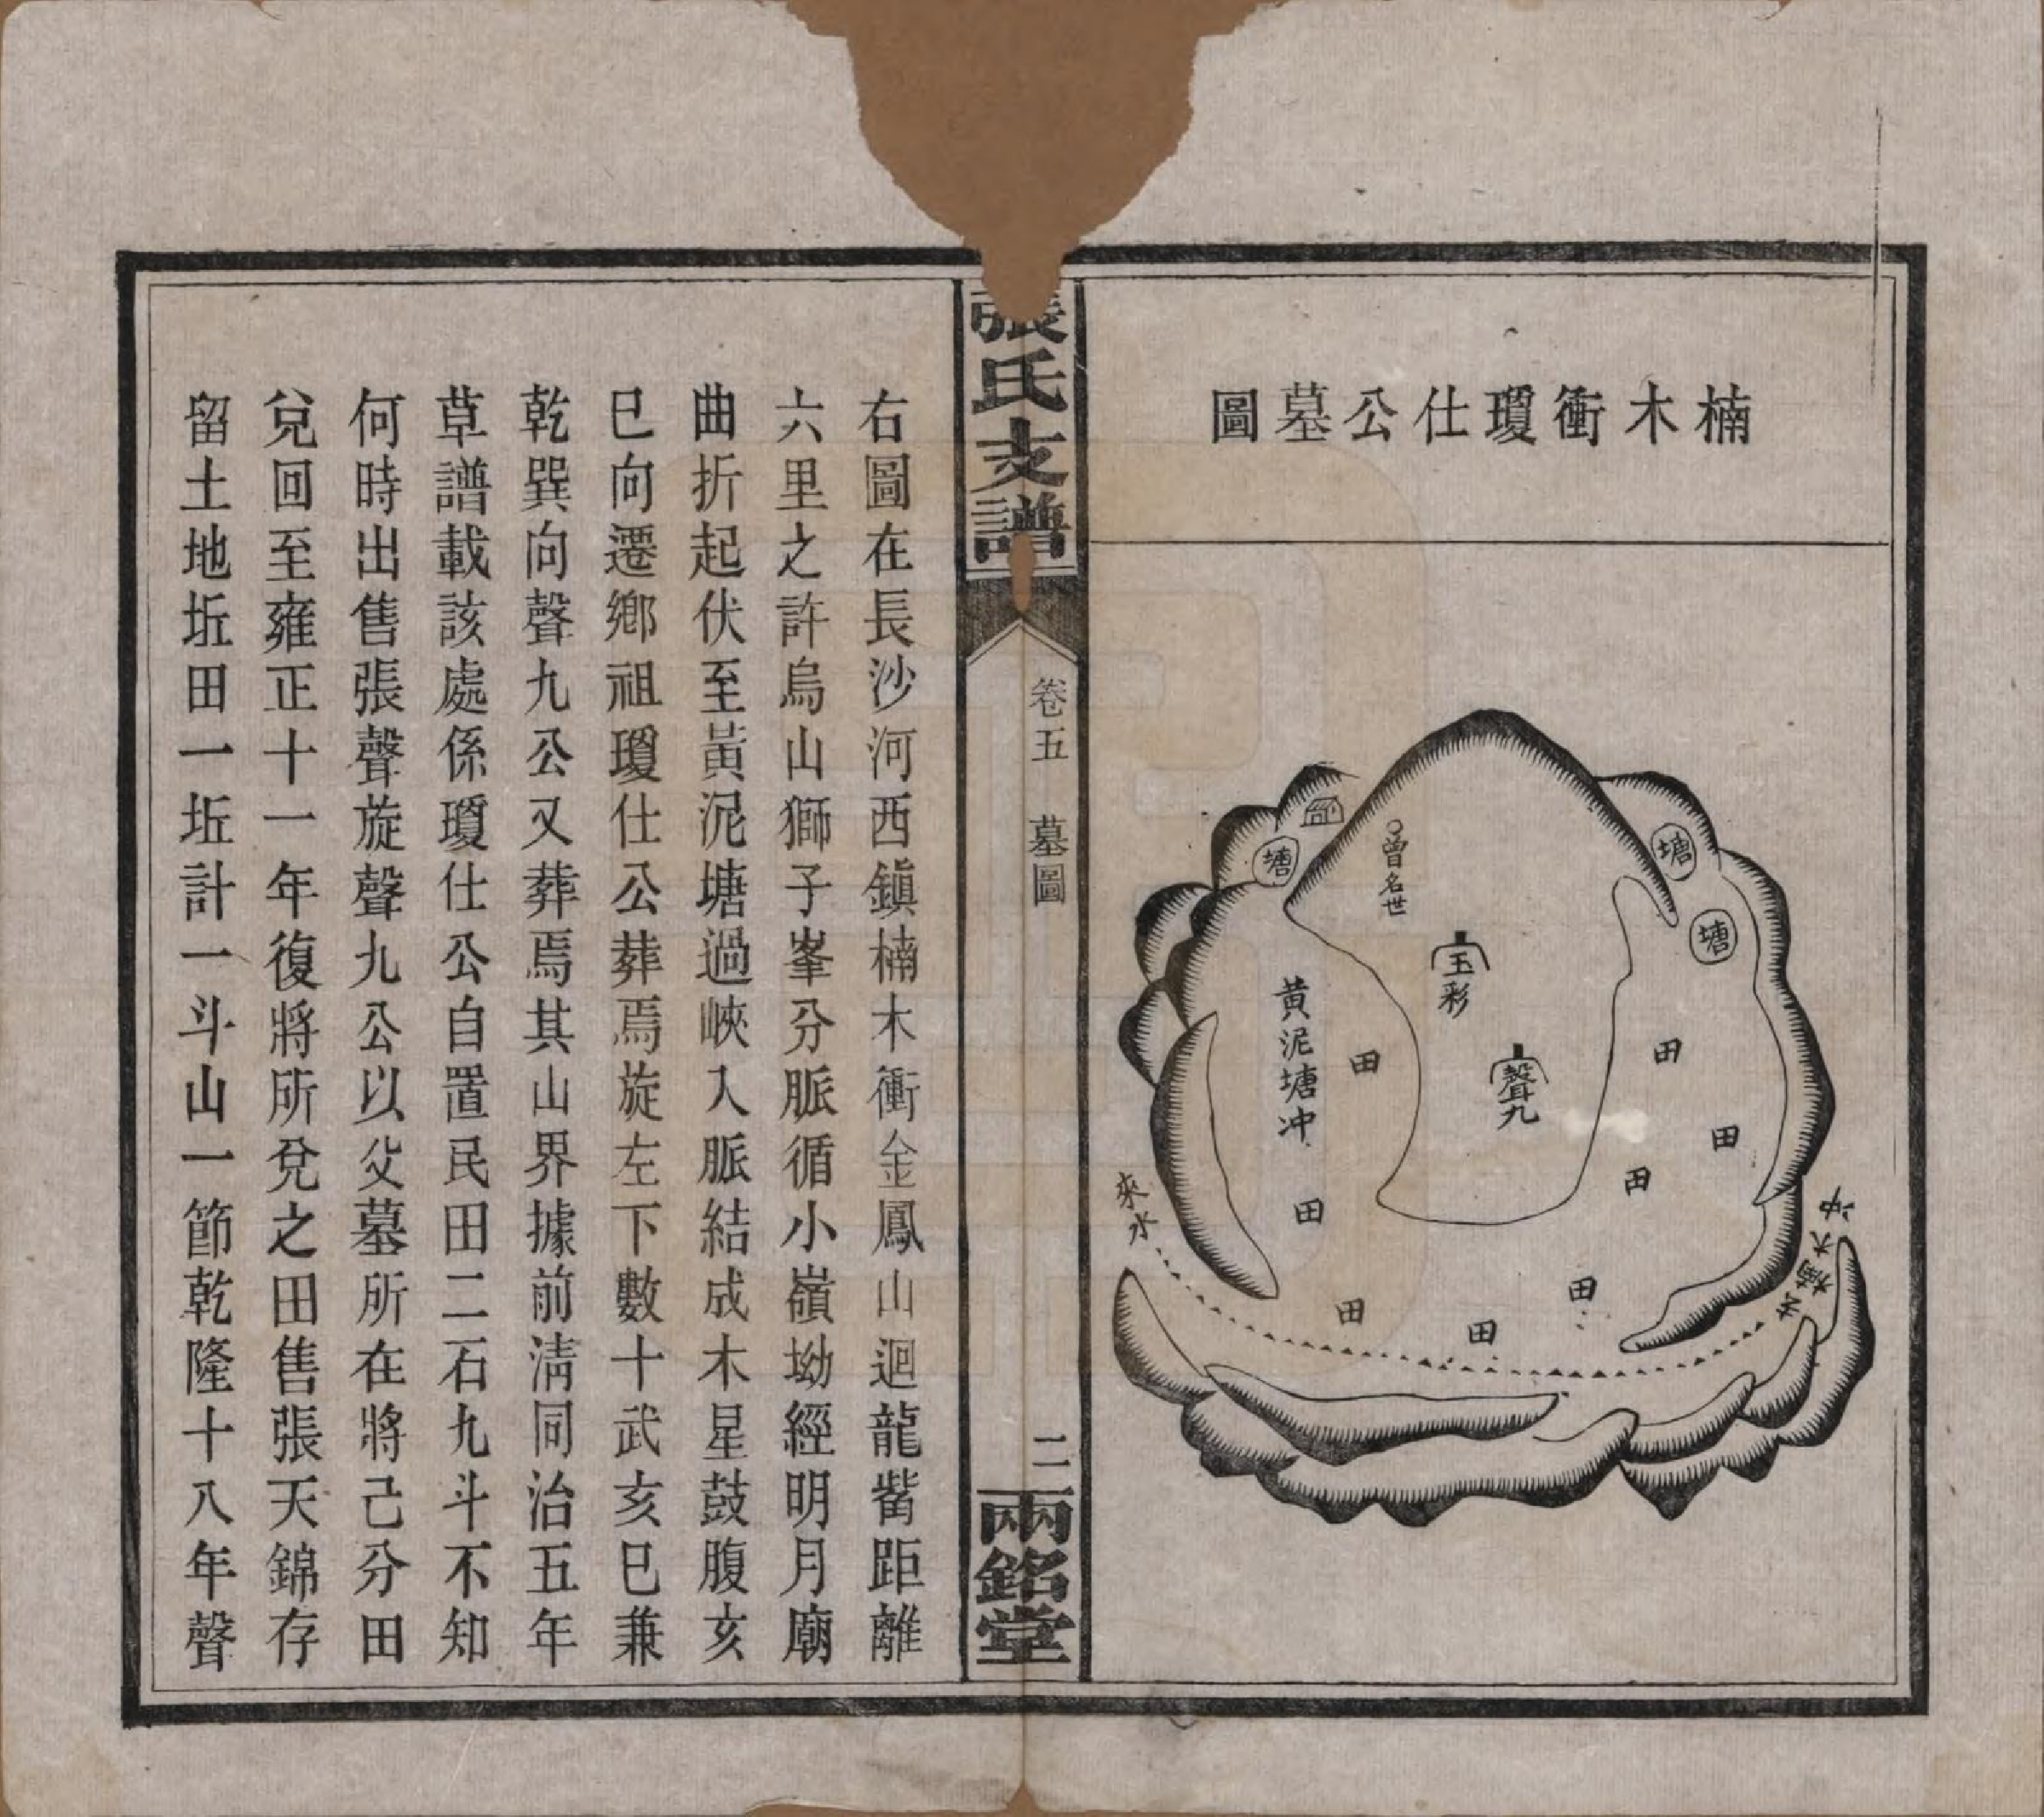 楠木衝瓊仕公墓圖
塘
塘
塘
曾名世
玉彩
聲九
黃泥塘冲
田
田
田
田
田
田
田
田
來水
去楠木冲
張氏支譜
卷五
墓圖
二
兩銘堂
右圖在長沙河西鎮楠木衝金鳳山迴龍觜距離
六里之許烏山獅子峯分脈循小嶺坳經明月廟
曲折起伏至黃泥塘過峽入脈結成木星鼓腹亥
巳向遷鄉祖瓊仕公葬焉旋左下數十武亥巳兼
乾巽向聲九公又葬焉其山界據前淸同治五年
草譜載該處係瓊仕公自置民田二石九斗不知
何時出售張聲旋聲九公以父墓所在將己分田
兌回至雍正十一年復將所兌之田售張天錦存
留土地坵田一坵計一斗山一節乾隆十八年聲